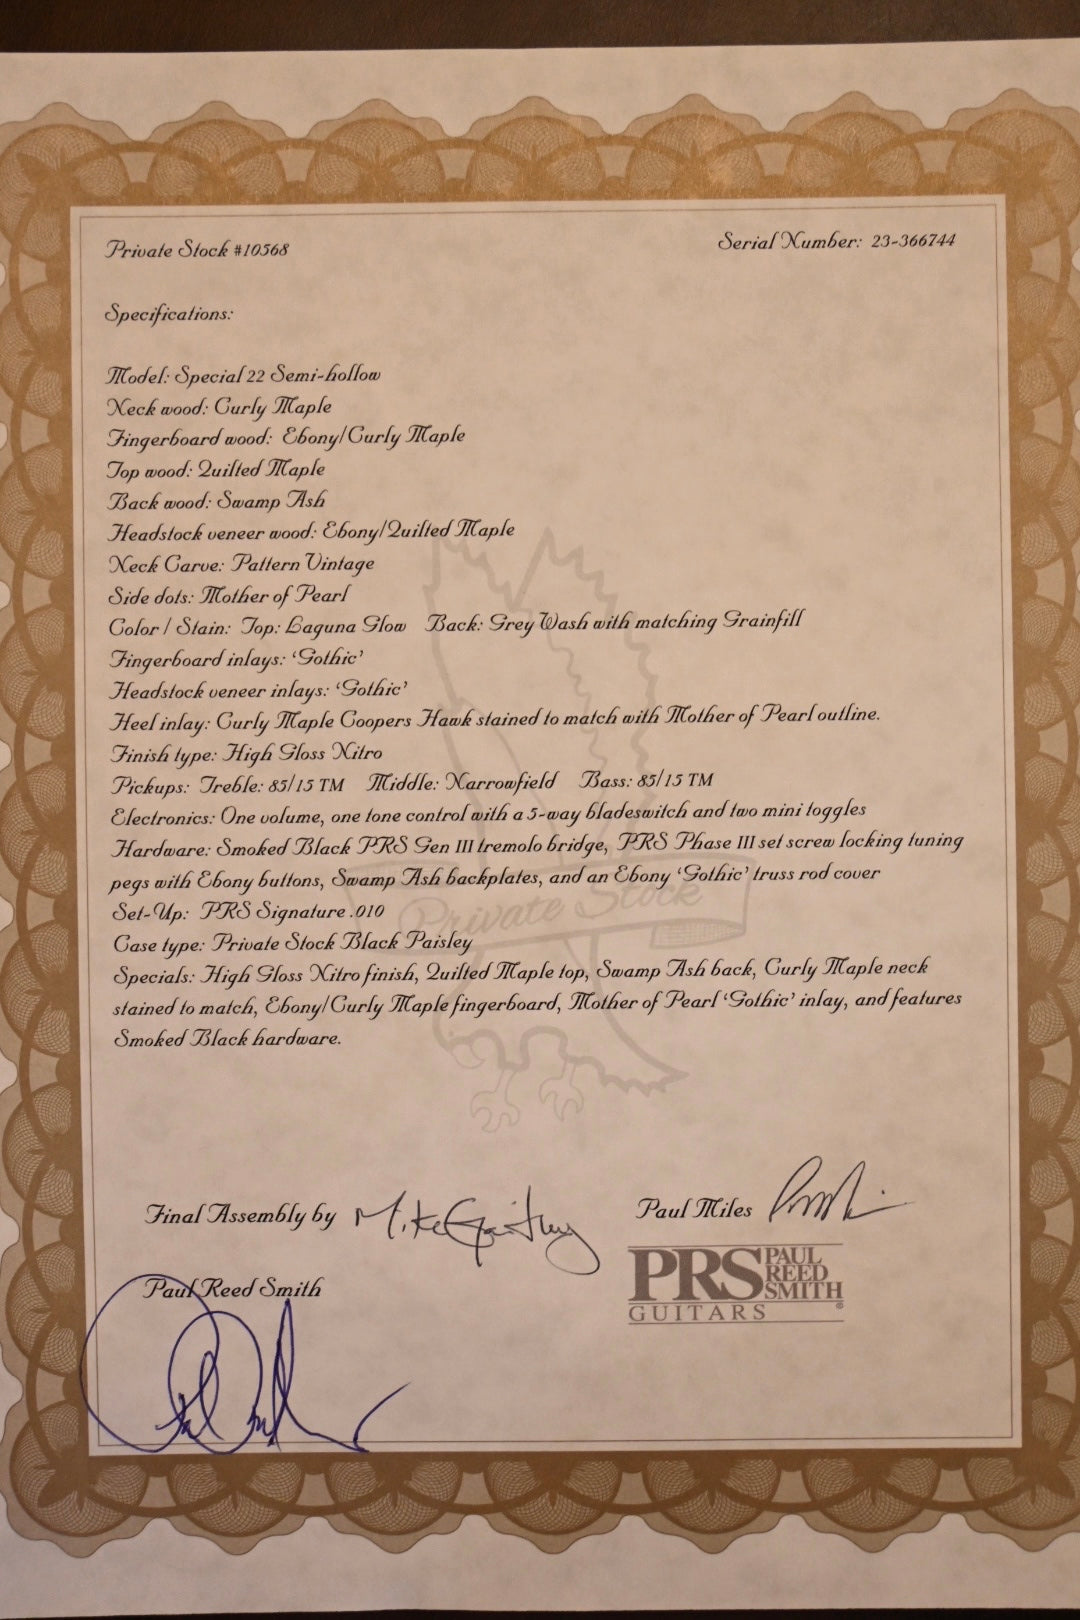 Private Stock #10568
Serial Number: 23-366744
Specifications:
Model: Special 22 Semi-hollow
Neck wood: Curly Maple
Fingerboard wood: Ebony/Curly Maple
Top wood: Quilted Maple
Back wood: Swamp Ash
Headstock veneer wood: Ebony/Quilted Maple
Neck Carve: Pattern Vintage
Side dots: Mother of Pearl
Color / Stain: Top: Laguna Glow Back: Grey Wash with matching Grainfill
Fingerboard inlays: ‘Gothic’
Headstock veneer inlays: ‘Gothic’
Heel inlay: Curly Maple Coopers Hawk stained to match with Mother of Pearl outline.
Finish type: High Gloss Nitro
Pickups: Treble: 85/15 TM Middle: Narrowfield Bass: 85/15 TM
Electronics: One volume, one tone control with a 5-way bladeswitch and two mini toggles
Hardware: Smoked Black PRS Gen III tremolo bridge, PRS Phase III set screw locking tuning
pegs with Ebony buttons, Swamp Ash backplates, and an Ebony ‘Gothic’ truss rod cover
Private Stock
Set-Up: PRS Signature .010
Case type: Private Stock Black Paisley
Specials: High Gloss Nitro finish, Quilted Maple top, Swamp Ash back, Curly Maple neck
stained to match, Ebony/Curly Maple fingerboard, Mother of Pearl ‘Gothic’ inlay, and features
Smoked Black hardware.
Final Assembly by Mike
Paul Miles
PRS PAUL REED SMITH
GUITARS
Paul Reed Smith